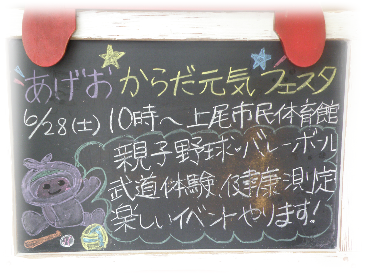 あげお からだ元気フェスタ
6/28(土) 10時〜上尾市民体育館
親子野球・バレーボール
武道体験、健康測定
楽しいイベントやります!